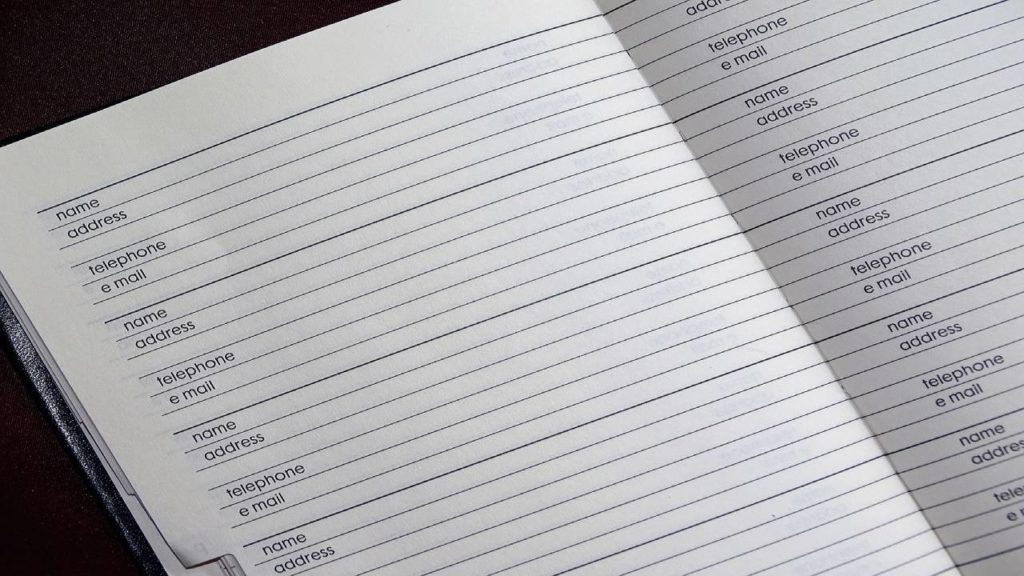 name
address
telephone
e mail
name
address
telephone
e mail
name
address
telephone
e mail
name
address
address
telephone
e mail
name
address
telephone
e mail
name
address
telephone
e mail
name
address
telephone
e mail
name
address